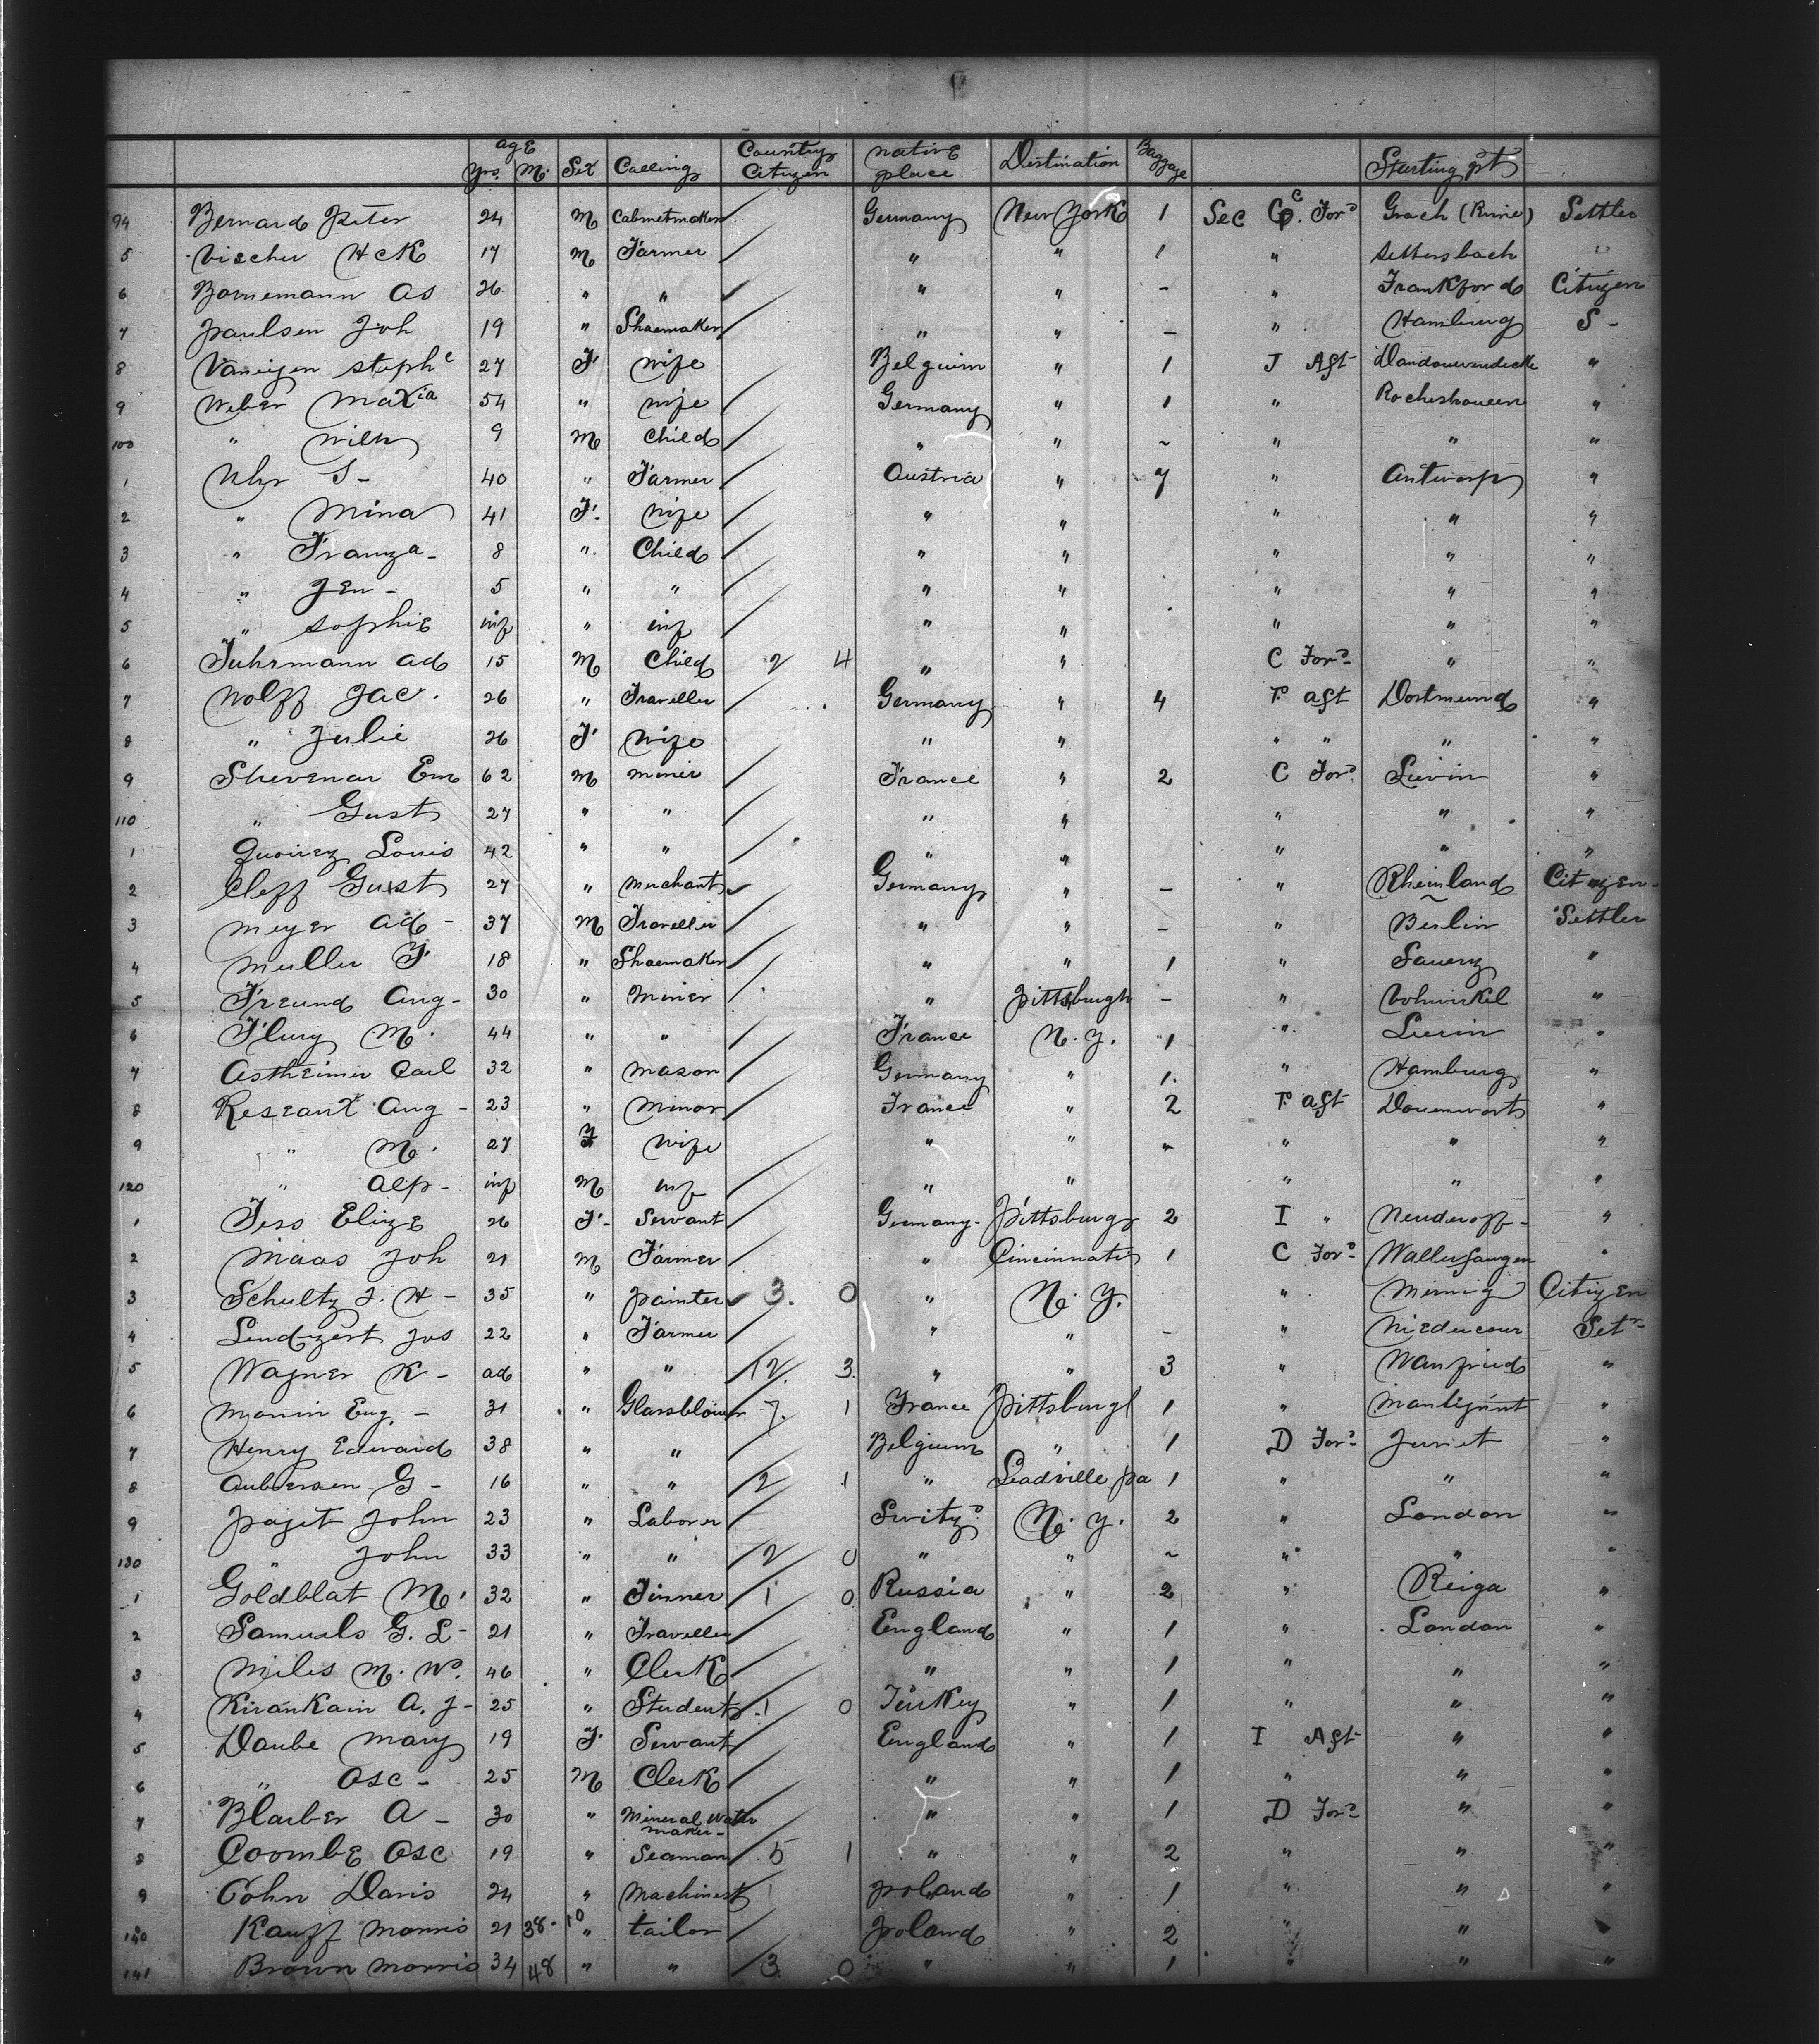 age Country native Baggage
Yrs. M. Sex Calling Citizen place Destination Starting pt
94 Bernard Peter 24 M Cabinetmaker Germany New York 1 Sec C. For^d Settler
5 Vischer 17 M Farmer " " 1 " "
6 Bornemann As 26 " " " " - " Frankford Citizen
7 Paulsen Joh 19 " Shoemaker " " - " Hamburg S -
8 Steph^e 27 F wife Belguim " 1 Aft "
9 Weber 54 " wife Germany " 1 " "
100 " Wilh 9 M Child " " ~ " " "
1 Uhr S - 40 " Farmer Austria " 7 " Antwerp "
2 " Mina 41 F. wife " " " " "
3 " Franza - 8 " Child " " " " "
4 " Jen - 5 " " " " " " "
5 " Sophie inf " inf " " " " "
6 Fuhrmann Ad 15 M Child 2 4 " " C For^d " "
7 Wolff Jac. 26 " Traveller Germany " 4 F. aft Dortmund "
8 " Julie 26 F wife " " " " " "
9 Em 62 M miner France " 2 C For^d "
110 " Gust 27 " " " " " " "
1 Louis 42 " " " " " " "
2 Cleff Gust 27 " Merchant Germany " - " Rheinland Citizen -
3 Meyer Ad - 37 M Traveller " " - " Berlin Settler
4 Muller F 18 " Shoemaker " " 1 " "
5 Freund Aug - 30 " Miner " Pittsburgh - " Vohwinkel "
6 Flury M. 44 " " France N. Y. 1 " "
7 Astheimer Carl 32 " Mason Germany " 1. " Hamburg "
8 Aug - 23 " Minor France " 2 F. aft "
9 " M. 27 F wife " " " " " "
120 " Alp - inf M inf " " " " "
1 Elize 26 F - Servant Germany - Pittsburg 2 I " "
2 Maas Joh 21 M Farmer " Cincinnati 1 C For^d Wallerfangen "
3 Schultz J. H - 35 " painter 3. 0 " N. Y. " Citizen
4 Jos 22 " Farmer " " - " Set^r
5 Wagner K - ad " " 12. 3. " " 3 " Wanfried "
6 Eug. - 31 " Glassblower 7. 1 France Pittsburgh 1 " "
7 Henry Edward 38 " " Belgium " 1 D For^d Jumet "
8 G - 16 " " 2 1 " Leadville Pa 1 " " "
9 Pajet John 23 " Laborer Switz^d N. Y. 2 " London "
130 " John 33 " " 2 0 " " ~ " " "
1 Goldblat M. 32 " 1 0 Russia " 2 " Reiga "
2 Samuels G. L - 21 " Traveller England " 1 " London "
3 Miles M. W. 46 " Clerk " " 1 " " "
4 Kirankain A. J - 25 " Student 1 0 Turkey " 1 " " "
5 Daube Mary 19 F. Servant England " 1 I Aft " "
6 " Osc - 25 M Clerk " " 1 " " "
7 Blaiber A - 30 " Mineral Water " " 1 D For^d " "
maker -
8 Coombe Osc 19 " Seaman 5 1 " " 2 " " "
9 Cohn Davis 24 " Machinest Poland " 1 " " "
140 Kauff Morris 21 38 - 10 " tailor Poland " 2 " "
141 Brown Morris 34 48 " " 3 0 " " 1 " " "